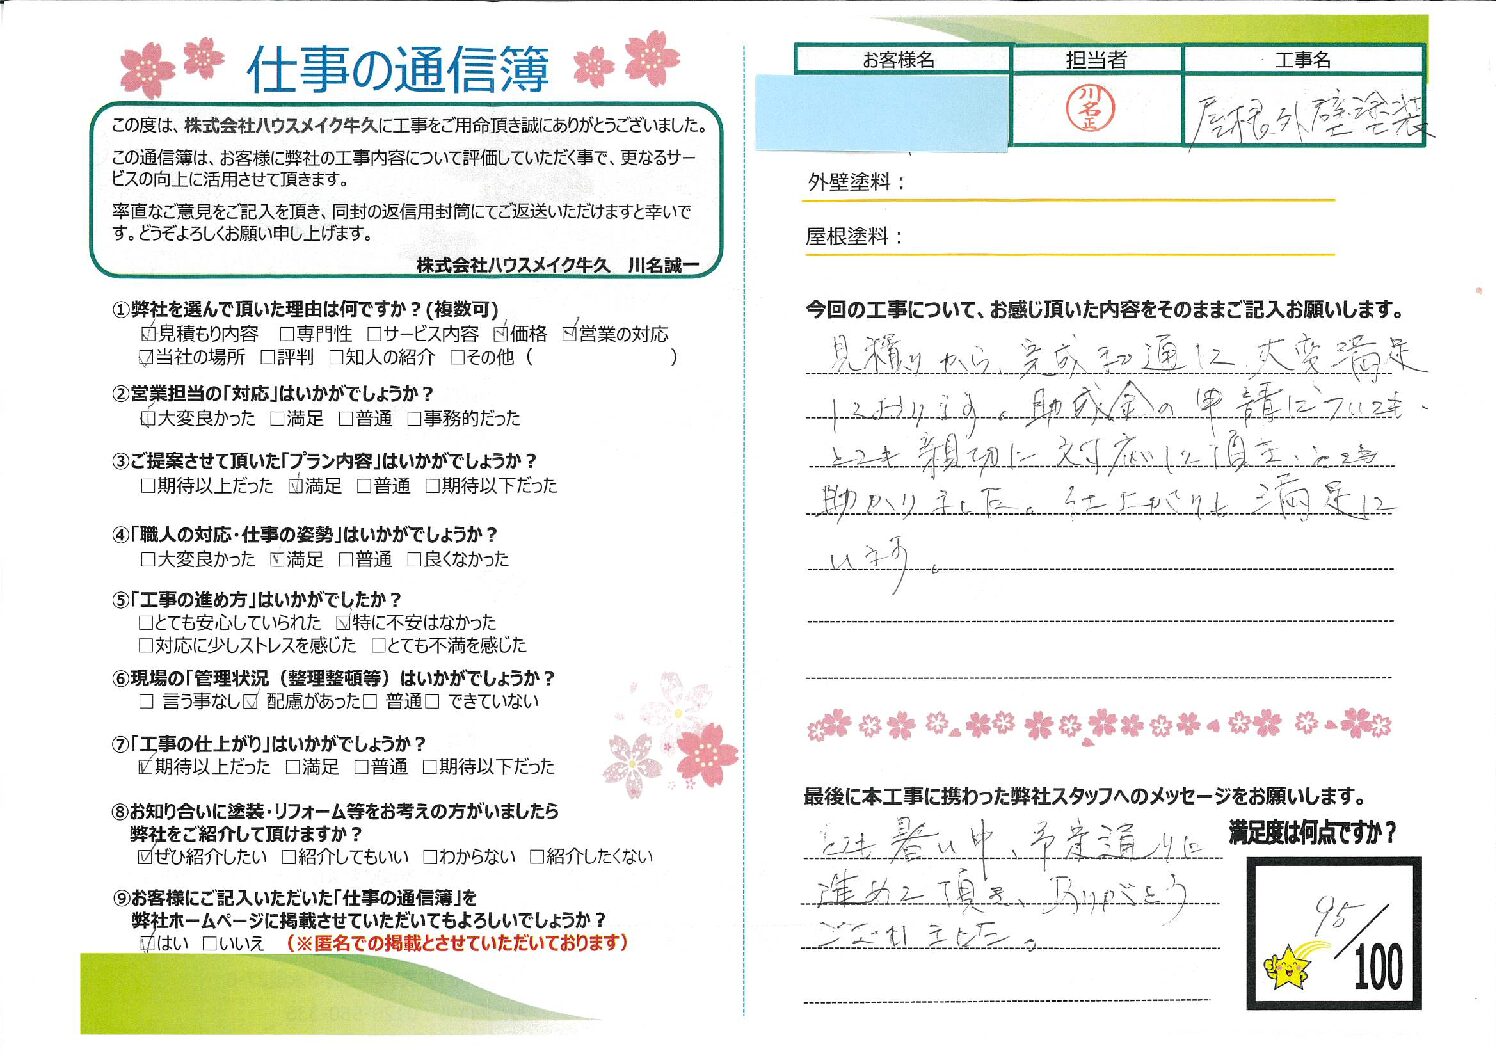 仕事の通信簿
この度は、株式会社ハウスメイク牛久に工事をご用命頂き誠にありがとうございました。
この通信簿は、お客様に弊社の工事内容について評価していただく事で、更なるサー
ビスの向上に活用させて頂きます。
率直なご意見をご記入を頂き、同封の返信用封筒にてご返送いただけますと幸いで
す。どうぞよろしくお願い申し上げます。
株式会社ハウスメイク牛久　川名誠一
①弊社を選んで頂いた理由は何ですか？(複数可)
☑見積もり内容　□専門性　□サービス内容　☑価格　☑営業の対応
☑当社の場所　□評判　□知人の紹介　□その他（　　　　　　　）
②営業担当の「対応」はいかがでしょうか？
☑大変良かった　□満足　□普通　□事務的だった
③ご提案させて頂いた「プラン内容」はいかがでしょうか？
□期待以上だった　☑満足　□普通　□期待以下だった
④「職人の対応・仕事の姿勢」はいかがでしょうか？
□大変良かった　☑満足　□普通　□良くなかった
⑤「工事の進め方」はいかがでしたか？
□とても安心していられた　☑特に不安はなかった
□対応に少しストレスを感じた　□とても不満を感じた
⑥現場の「管理状況（整理整頓等）はいかがでしょうか？
□ 言う事なし☑ 配慮があった□ 普通□ できていない
⑦「工事の仕上がり」はいかがでしょうか？
☑期待以上だった　□満足　□普通　□期待以下だった
⑧お知り合いに塗装・リフォーム等をお考えの方がいましたら
弊社をご紹介して頂けますか？
☑ぜひ紹介したい　□紹介してもいい　□わからない　□紹介したくない
⑨お客様にご記入いただいた「仕事の通信簿」を
弊社ホームページに掲載させていただいてもよろしいでしょうか？
☑はい　□いいえ　（※匿名での掲載とさせていただいております）
お客様名　担当者　工事名
川名正　屋根外壁塗装
外壁塗料：
屋根塗料：
今回の工事について、お感じ頂いた内容をそのままご記入お願いします。
見積りから、完成まで通して、大変満足
しております。助成金の申請についても、
とても親切に対応して頂き、とても
助かりました。仕上がりも満足して
います。
最後に本工事に携わった弊社スタッフへのメッセージをお願いします。
とても暑い中、予定通りに
進めて頂き、ありがとう
ございました。
満足度は何点ですか？
95/100